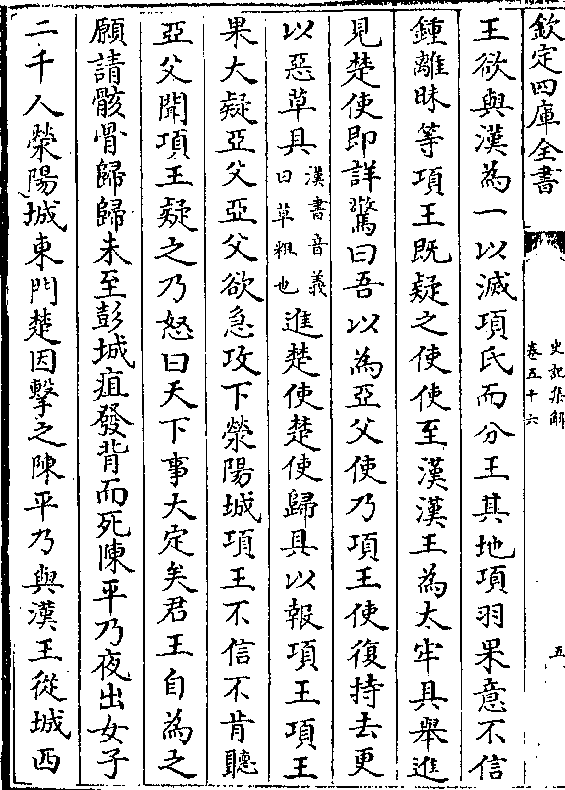 欽定四庫全書
史記集解
卷五十六
五
王欲與漢為一以滅項氏而分王其地項羽果意不信
鍾離昧等項王既疑之使使至漢漢王為太牢具舉進
見楚使即詳驚曰吾以為亞父使乃項王使復持去更
以惡草具漢書音義曰草粗也進楚使楚使歸具以報項王項王
果大疑亞父亞父欲急攻下滎陽城項王不信不肯聽
亞父聞項王疑之乃怒曰天下事大定矣君王自為之
願請骸骨歸歸未至彭城疽發背而死陳平乃夜出女子
二千人滎陽城東門楚因擊之陳平乃與漢王從城西